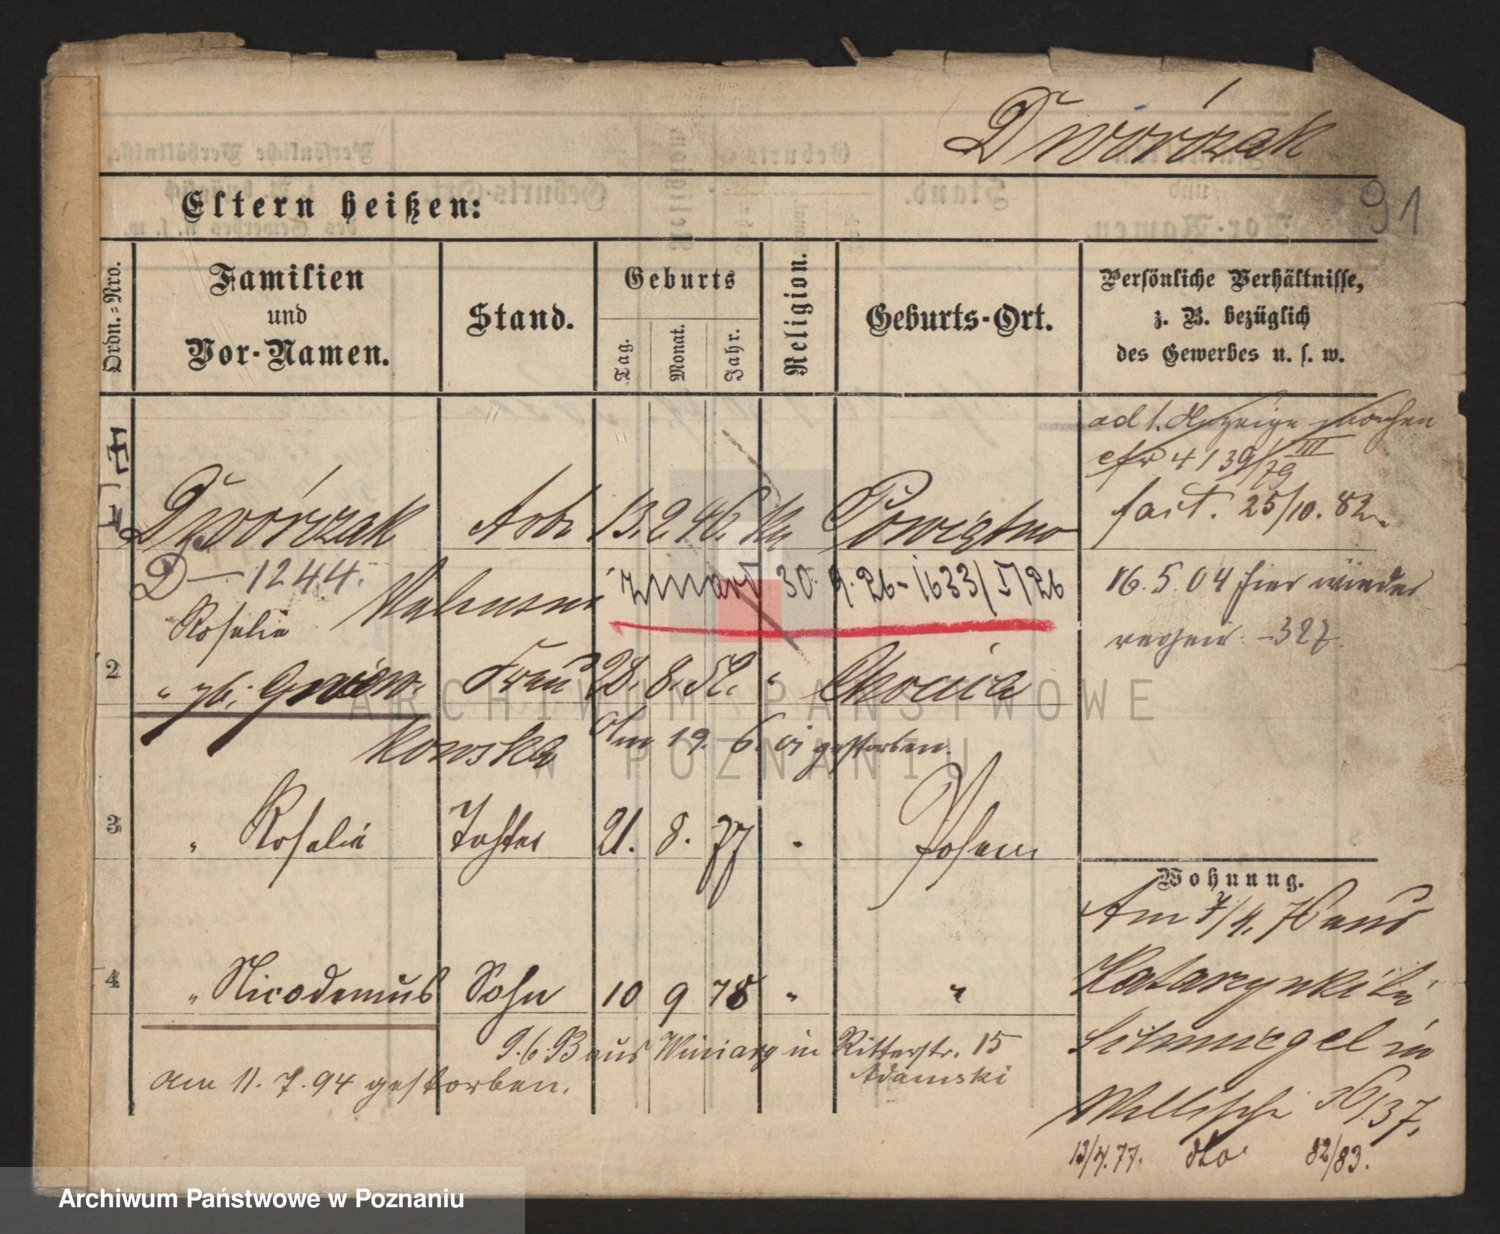 Dwórczak
91
Eltern heißen:
Ordn.-Nro.
Familien
und
Vor-Namen.
Stand.
Geburts
Tag. Monat. Jahr.
Religion.
Geburts-Ort.
Persönliche Verhältnisse,
z. B. bezüglich
des Gewerbes u. s. w.
ad 1. Anzeige
4139/79 III
fact. 25/10. 82
Dwórczak Arb. 13. 2. 46. Powiętno
D-1244. zmarł 30. 9. 26 - 1633/5/26
16. 5. 04 hier wieder
Rosalie
327
2 " gb. Frau 28. 8. 52. "
kowska Am 19. 6. 01 gestorben.
3 " Rosalie Tochter 21. 8. 77 " Posen
Wohnung.
Am 7/4. 76 aus
4 " Nicodemus Sohn 10 9 78 " "
Katarzynki bei
9. 6. 13 aus Winiary in Ritterstr. 15
Adamski
am 11. 7. 94 gestorben.
in
Wallische 36/37.
13/4. 77. dto 82/83.
ARCHIWUM PAŃSTWOWE
W POZNANIU
Archiwum Państwowe w Poznaniu